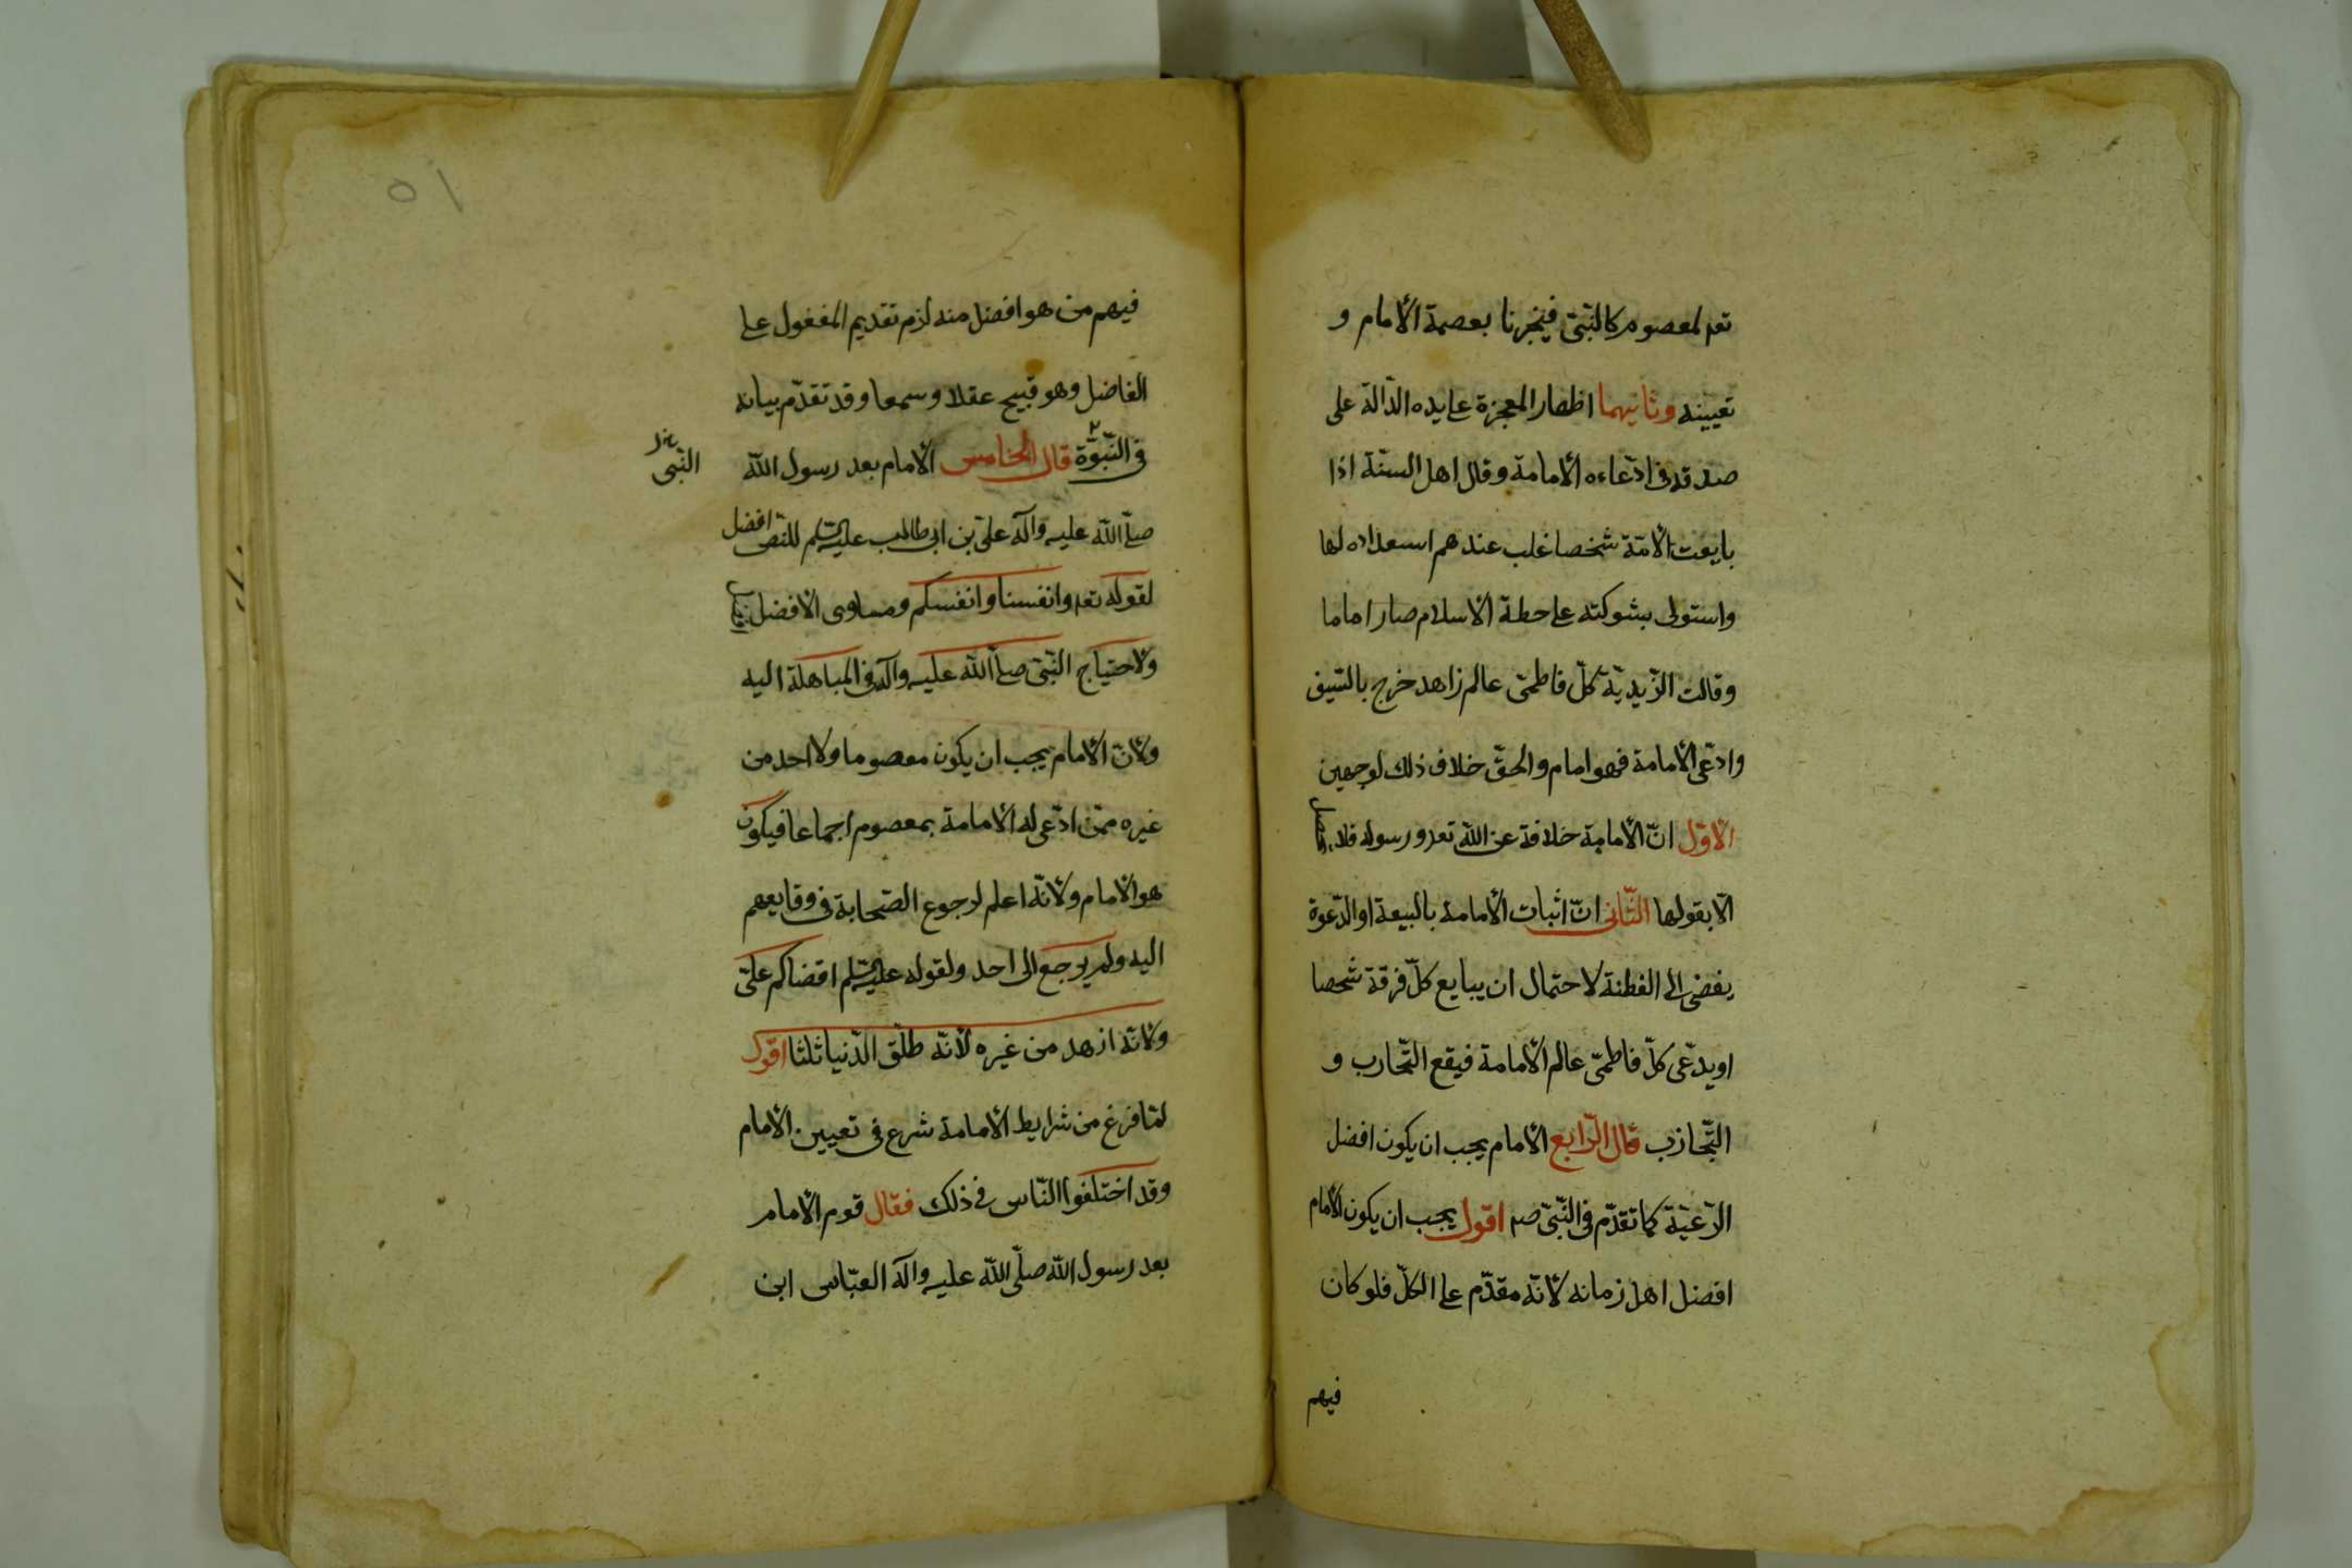 تعم لمعصوم كالنّبىّ فيخبرنا بعصمة الأمام و
تعيينه وثانيهما اظهار المعجزة على يده الدّالة على
صدقه فى ادّعاءه الأمامة وقال اهل السنّة اذا
بايعت الأمّة شخصا غلب عندهم اسعداده لها
واستولى بشوكته على حطة الأسلام صار اماما
وقالت الزّيديّة كلّ فاطمىّ عالم زاهد خرج بالسّيف
وادّعى الأمامة فهو امام والحقّ خلاف ذلك لوجهين
الأوّل انّ الأمامة خلافة عن اللّه تعم ورسوله فلا
الّا بقولها الثّانى انّ اثبات الأمامة بالبيعة او الدّعوة
يفضى الى الفطنة لاحتمال ان يبايع كلّ فرقة شخصا
او يدّعى كلّ فاطمىّ عالم الأمامة فيقع التّحارب و
التّجاذب قال الرّابع الأمام يجب ان يكون افضل
الرّعيّة كما تقدّم فى النّبىّ صم اقول يجب ان يكون الأمام
افضل اهل زمانه لأنّه مقدّم على الكلّ فلو كان
فيهم
١٥
فيهم من هو افضل منه لزم تقديم المفغول على
الفاضل وهو قبيح عقلا وسمعا وقد تقدّم بيانه
فى النّبوّة قال الخامس الأمام بعد رسول اللّه
النّبى
صلّى اللّه عليه وآله علىّ بن ابى طالب عليه السّلم للنّص افضل
لقوله تعم وانفسنا وانفسكم ومساوى الأفضل
ولاحتياج النّبىّ صلّى اللّه عليه وآله فى المباهلة اليه
ولأنّ الأمام يجب ان يكون معصوما ولا احد من
غيره ممّن ادّعى له الأمامة بمعصوم اجماعا فيكون
هو الأمام ولأنّه اعلم لرجوع الصّحابة فى وقايعهم
اليه ولم يرجع الى احد ولقوله عليه السّلم اقضاكم علىّ
ولأنّه ازهد من غيره لأنّه طلّق الدّنيا ثلثا اقول
لمّا فرغ من شرايط الأمامة شرع فى تعيين الأمام
وقد اختلفوا النّاس فى ذلك فقال قوم الأمام
بعد رسول اللّه صلّى اللّه عليه وآله العبّاس ابن